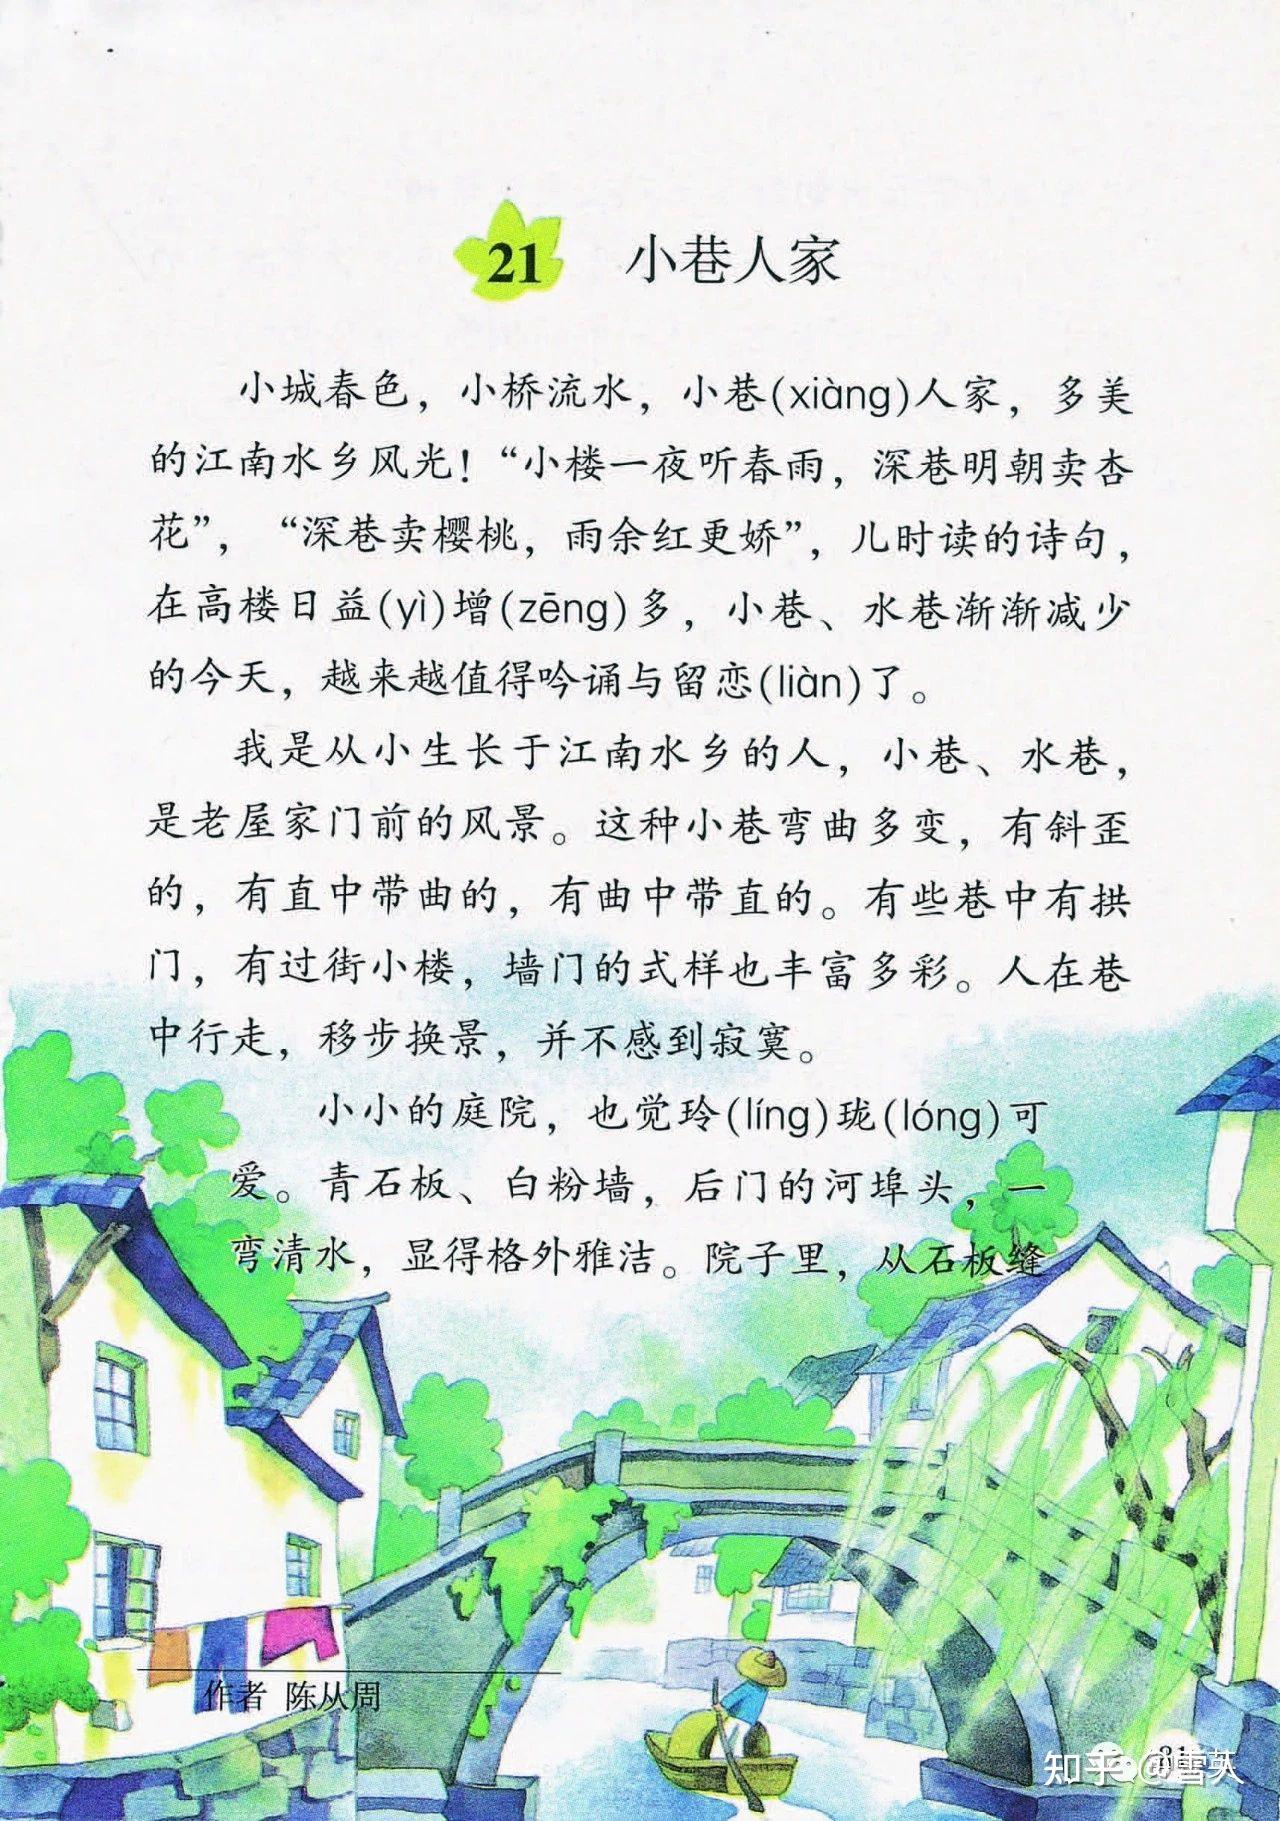 21 小巷人家
小城春色，小桥流水，小巷(xiàng)人家，多美
的江南水乡风光！“小楼一夜听春雨，深巷明朝卖杏
花”，“深巷卖樱桃，雨余红更娇”，儿时读的诗句，
在高楼日益(yì)增(zēng)多，小巷、水巷渐渐减少
的今天，越来越值得吟诵与留恋(liàn)了。
我是从小生长于江南水乡的人，小巷、水巷，
是老屋家门前的风景。这种小巷弯曲多变，有斜歪
的，有直中带曲的，有曲中带直的。有些巷中有拱
门，有过街小楼，墙门的式样也丰富多彩。人在巷
中行走，移步换景，并不感到寂寞。
小小的庭院，也觉玲(líng)珑(lóng)可
爱。青石板、白粉墙，后门的河埠头，一
弯清水，显得格外雅洁。院子里，从石板缝
作者 陈从周
知乎 @雪英